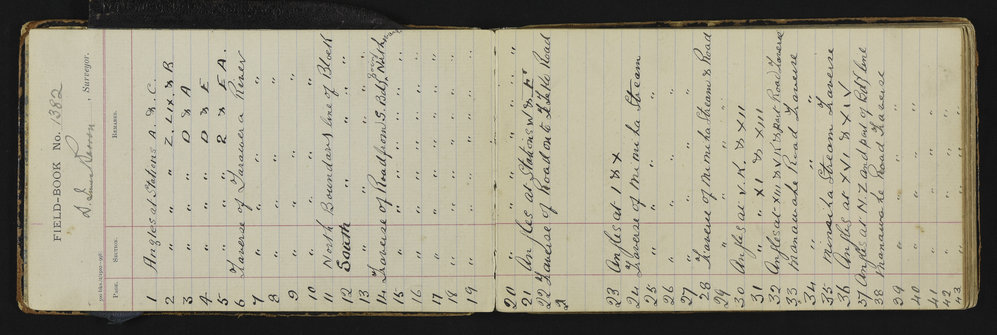 FIELD-BOOK No. 1382
, Surveyor.
PAGE. SECTION. REMARKS.
1 Angles at Stations A & C.
2 " " " Z. LIX. & B
3 " " " D & A
4 " " " D & E
5 " " " R & EA.
6 Traverse of Tarawera River
7 " " " "
8 " " " "
9 " " " "
10 " " " "
11 North Boundary line of Block
12 South " " " "
13 " " " "
14 Traverse of Road from S. Bdy, North
15 " " " " "
16 " " " " "
17 " " " " "
18 " " " " "
19 " " " " "
20 " " " " "
21 Angles at Stations & E"
22 Traverse of Road on to Road
23 Angles at I & X
24 Traverse of Mimiha Stream
25 " " " "
26 " " " "
27 " " " "
28 Traverse of Mimiha Stream & Road
29 " " " "
30 Angles at V. K. & XII
31 " " XI & XIII
32 Angles at XIII & V.K & part Road Traverse
33 Manawahe Road Traverse
34 " " "
35 Mimiha Stream Traverse
36 Angles at XVI & XIV
37 Angles at N.Z and part of Bdy line
38 Manawahe Road Traverse
39 " " "
40 " " "
41 " " "
42 " " "
43 " " "